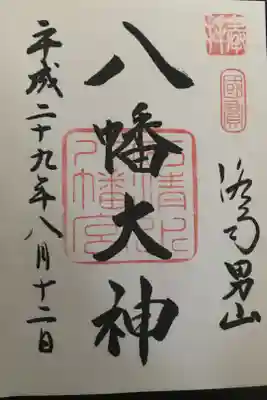 奉拝
國寳
洛南男山
八幡大神
石清水
八幡宮
平成二十九年八月十二日